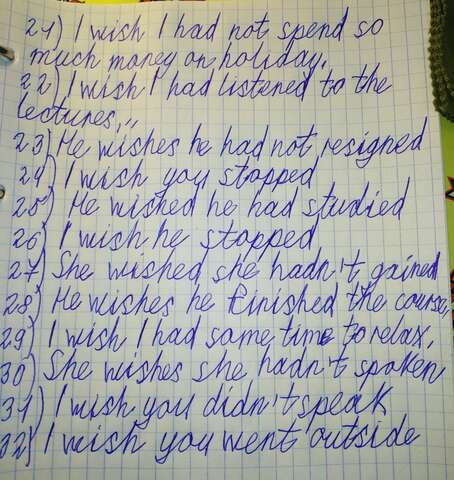 21) I wish I had not spend so
much money on holiday.
22) I wish I had listened to the
lectures,,
23) He wishes he had not resigned
24) I wish you stopped
25) He wished he had studied
26) I wish he stopped
27) She wished she hadn't gained
28) He wishes he finished the course,
29) I wish I had some time to relax,
30) She wishes she hadn't spoken
31) I wish you didn't speak
32) I wish you went outside